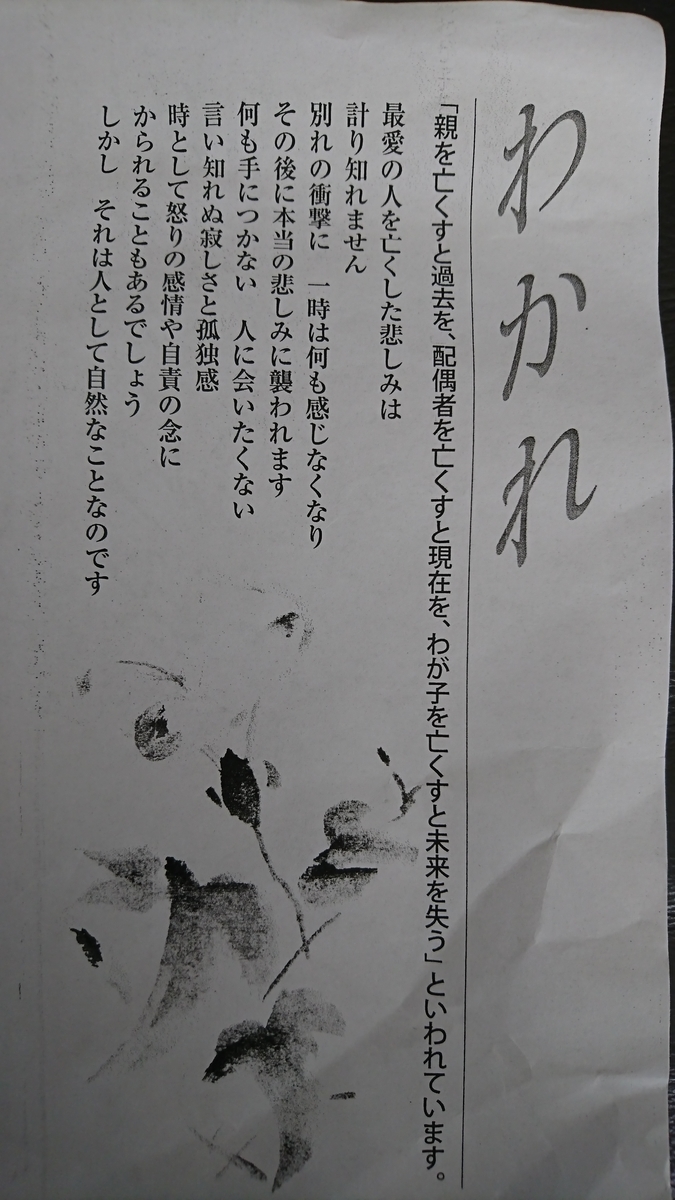 わかれ
「親を亡くすと過去を、配偶者を亡くすと現在を、わが子を亡くすと未来を失う」といわれています。
最愛の人を亡くした悲しみは
計り知れません
別れの衝撃に　一時は何も感じなくなり
その後に本当の悲しみに襲われます
何も手につかない　人に会いたくない
言い知れぬ寂しさと孤独感
時として怒りの感情や自責の念に
かられることもあるでしょう
しかし　それは人として自然なことなのです